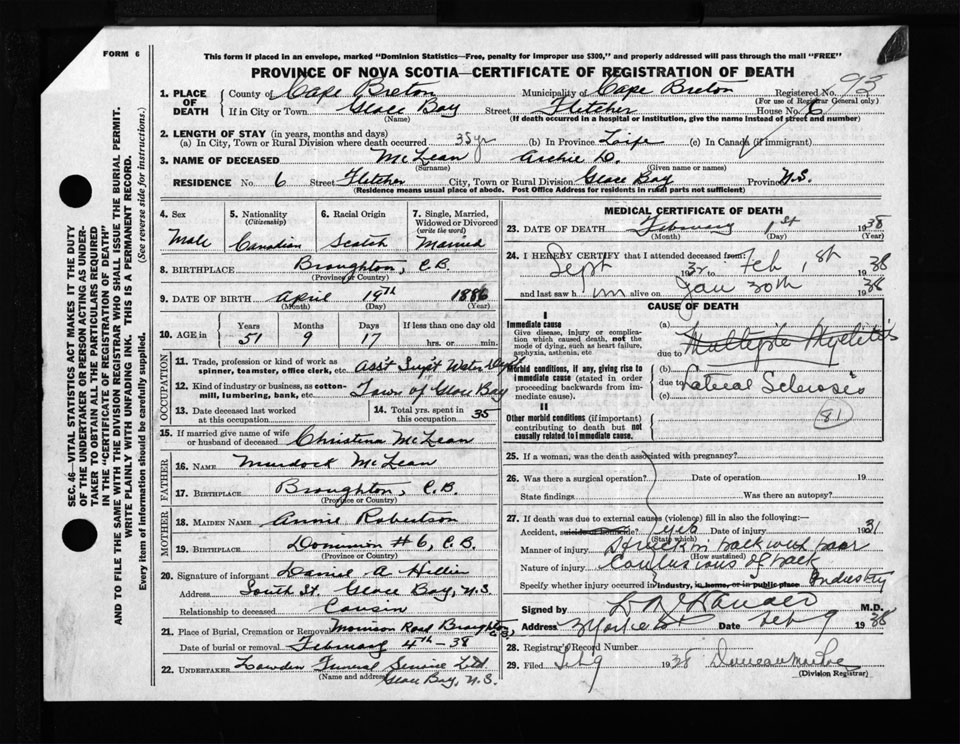 FORM 6
This form if placed in an envelope, marked "Dominion Statistics—Free, penalty for improper use $300," and properly addressed will pass through the mail "FREE"
PROVINCE OF NOVA SCOTIA—CERTIFICATE OF REGISTRATION OF DEATH
93
1. PLACE OF DEATH County of Cape Breton Municipality of Cape Breton Registered No.
(For use of Registrar General only)
If in City or Town Glace Bay Street Fletcher House No. 6
(Name) (If death occurred in a hospital or institution, give the name instead of street and number)
2. LENGTH OF STAY (in years, months and days)
(a) In City, Town or Rural Division where death occurred 35 yr (b) In Province Life (c) In Canada (if immigrant)
3. NAME OF DECEASED McLean Archie D.
(Surname) (Given name or names)
RESIDENCE No. 6 Street Fletcher City, Town or Rural Division Glace Bay Province N.S.
(Residence means usual place of abode. Post Office Address for residents in rural parts not sufficient)
4. Sex Male
5. Nationality (Citizenship) Canadian
6. Racial Origin Scotch
7. Single, Married, Widowed or Divorced (write the word) Married
8. BIRTHPLACE Broughton, C.B.
(Province or Country)
9. DATE OF BIRTH April 19th 1886
(Month) (Day) (Year)
10. AGE in Years Months Days If less than one day
51 9 17 hrs. or min.
OCCUPATION
11. Trade, profession or kind of work as spinner, teamster, office clerk, etc. Ass't Supt Water Dept
12. Kind of industry or business, as cotton-mill, lumbering, bank, etc. Town of Glace Bay
13. Date deceased last worked at this occupation
14. Total yrs. spent in this occupation 35
15. If married give name of wife or husband of deceased Christina McLean
FATHER
16. NAME Murdock McLean
17. BIRTHPLACE Broughton, C.B.
(Province or Country)
MOTHER
18. MAIDEN NAME Annie Robertson
19. BIRTHPLACE Dominion #6, C.B.
(Province or Country)
20. Signature of informant Daniel A
Address South St. Glace Bay, N.S.
Relationship to deceased Cousin
21. Place of Burial, Cremation or Removal Morrison Road Broughton, C.B.
Date of burial or removal February 4th - 38
22. UNDERTAKER Lowden Funeral Service Ltd
(Name and address) Glace Bay, N.S.
MEDICAL CERTIFICATE OF DEATH
23. DATE OF DEATH February 1st 1938
(Month) (Day) (Year)
24. I HEREBY CERTIFY that I attended deceased from:
Sept 1932 to Feb 1st 1938
and last saw him alive on Jan 30th 1938
CAUSE OF DEATH
I
Immediate cause
Give disease, injury or complication which caused death, not the mode of dying, such as heart failure, asphyxia, asthenia, etc
(a)
due to Multiple Myelitis
Morbid conditions, if any, giving rise to immediate cause (stated in order proceeding backwards from immediate cause).
(b)
due to Lateral Sclerosis
(c)
81
II
Other morbid conditions (if important) contributing to death but not causally related to immediate cause.
25. If a woman, was the death associated with pregnancy?
26. Was there a surgical operation? Date of operation 19
State findings Was there an autopsy?
27. If death was due to external causes (violence) fill in also the following:—
Accident, suicide or homicide? yes Date of injury 1931
(State which)
Manner of injury Struck in back with
(How sustained)
Nature of injury Contusions of back
Specify whether injury occurred in industry, in home, or in public place Industry
Signed by M.D.
Address Date Feb 9 1938
28. Registrar's Record Number
29. Filed Feb 9 1938 Duncan
(Division Registrar)
SEC. 46—VITAL STATISTICS ACT MAKES IT THE DUTY
OF THE UNDERTAKER OR PERSON ACTING AS UNDER-
TAKER TO OBTAIN ALL THE PARTICULARS REQUIRED
IN THE "CERTIFICATE OF REGISTRATION OF DEATH"
AND TO FILE THE SAME WITH THE DIVISION REGISTRAR WHO SHALL ISSUE THE BURIAL PERMIT.
WRITE PLAINLY WITH UNFADING INK. THIS IS A PERMANENT RECORD.
Every item of information should be carefully supplied. (See reverse side for instructions.)